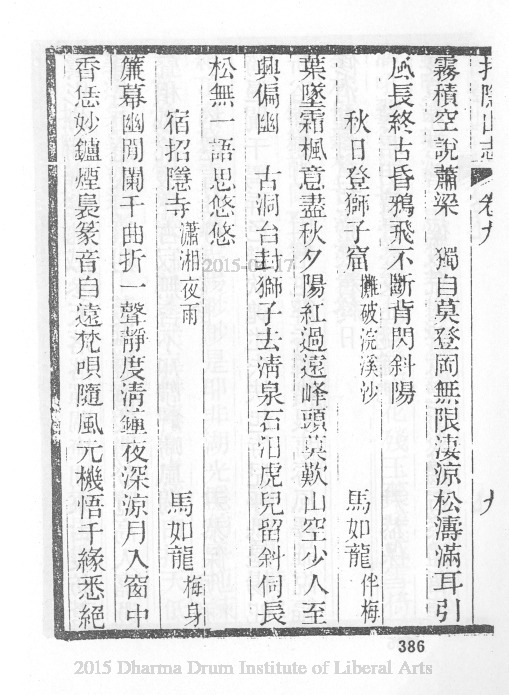 招隱山志 卷九 九
霧積空說蕭梁 獨自莫登岡無限淒涼松濤滿耳引
風長終古昏鴉飛不斷背閃斜陽
秋日登獅子窟 攤破浣溪沙 馬如龍 伴梅
葉墜霜楓意盡秋夕陽紅過遠峰頭莫歎山空少人至
興偏幽 古洞台封獅子去清泉石汨虎兒留斜伺長
松無一語思悠悠
宿招隱寺 瀟湘夜雨 馬如龍 梅身
簾幕幽閒闌干曲折一聲靜度清鐘夜深涼月入窗中
香恁妙鑪煙裊篆音自遠梵唄隨風元機悟千緣悉絕
2015-04-17
386
2015 Dharma Drum Institute of Liberal Arts